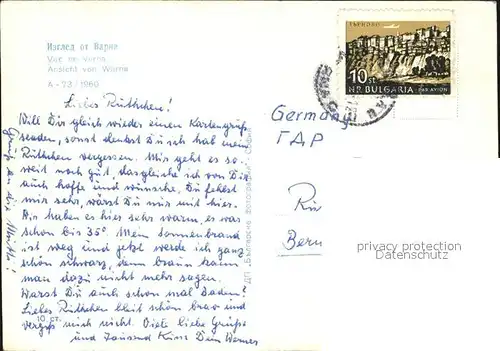 Изглед от Варна
Vue de Varna
Ansicht von Warna
A - 23 / 1960
Liebes Rüthchen!
Will Dir gleich wieder einen Kartengruß
senden, sonst denkst Du ich hab mein
Rüthchen vergessen. Mir geht es so-
weit noch gut, dasgleiche ich von Dir
auch hoffe und wünsche. Du fehlst
mir sehr, wärst Du nur mit hier.
Wir haben es hier sehr warm, es war
schon bis 35°. Mein Sonnenbrand
ist weg und jetzt werde ich ganz
schön schwarz, denn braun kann
man dazu nicht mehr sagen.
Warst Du auch schon mal baden?
Liebes Rüthchen bleib schön brav und
vergiß mich nicht. Viele liebe Grüße
und Tausend Küsse Dein Werner
Gruß an die Mutti!
10 ст.
ДП „Българска фотография" София
ТЪРНОВО
10 st
NR BULGARIA
PAR AVION
Germany
ГДР
Bern
privacy protection
Datenschutz